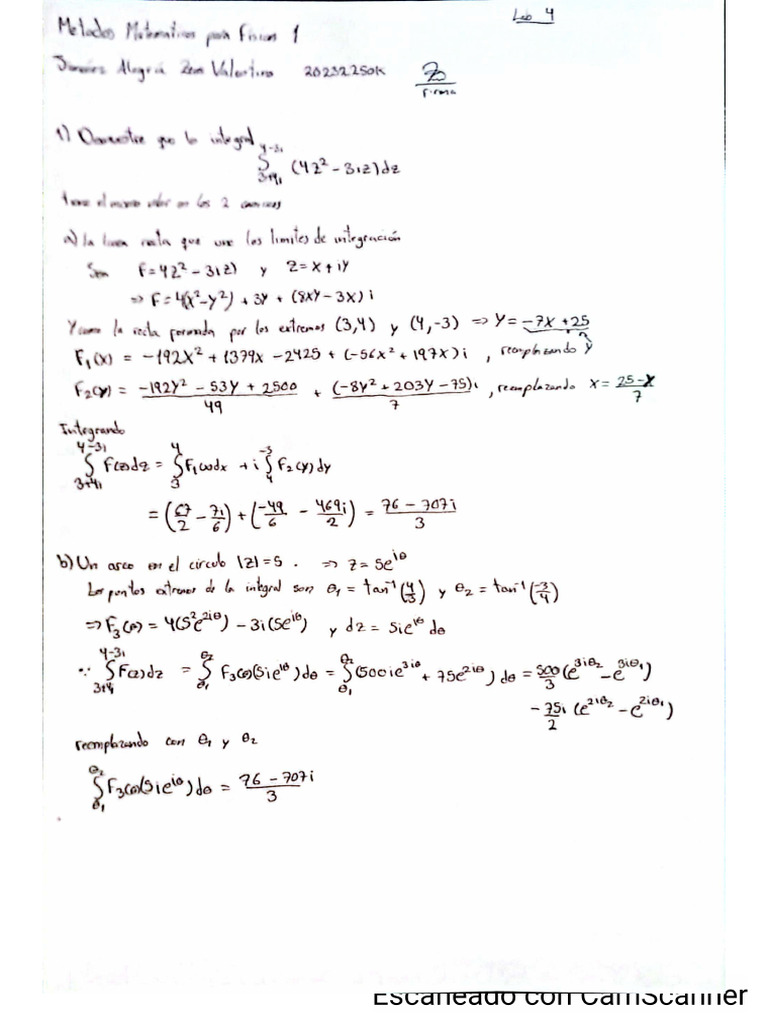 Lab 4
Metodos Matematicos para Fisicos 1
Jimenez Alegria Zeus Valentino 20232250K
Firma
1) Demuestre que la integral ∫_{3+4i}^{4-3i} (4z² - 3iz) dz
tiene el mismo valor en los 2 caminos
a) la linea recta que une los limites de integración
Sea F = 4z² - 3iz) y z = x + iy
⇒ F = 4(x² - y²) + 3y + (8xy - 3x) i
Y como la recta formada por los extremos (3,4) y (4,-3) ⇒ y = -7x + 25
F₁(x) = -192x² + 1379x - 2425 + (-56x² + 197x) i , reemplazando y
F₂(y) = (-192y² - 53y + 2500)/49 + (-8y² + 203y - 75)i/7 , reemplazando x = (25 - y)/7
Integrando
∫_{3+4i}^{4-3i} F(z)dz = ∫_3^4 F₁(x)dx + i ∫_4^{-3} F₂(y)dy
= (67/2 - 71/6) + (-49/6 - 469i/2) = (76 - 707i)/3
b) Un arco en el circulo |z| = 5 . ⇒ z = 5e^{iθ}
Los puntos extremos de la integral son θ₁ = tan⁻¹(4/3) y θ₂ = tan⁻¹(-3/4)
⇒ F₃(θ) = 4(5²e^{2iθ}) - 3i(5e^{iθ}) y dz = 5ie^{iθ} dθ
∵ ∫_{3+4i}^{4-3i} F(z)dz = ∫_{θ₁}^{θ₂} F₃(θ)(5ie^{iθ})dθ = ∫_{θ₁}^{θ₂} (500ie^{3iθ} + 75e^{2iθ}) dθ = 500/3 (e^{3iθ₂} - e^{3iθ₁})
- 75i/2 (e^{2iθ₂} - e^{2iθ₁})
reemplazando con θ₁ y θ₂
∫_{θ₁}^{θ₂} F₃(θ)(5ie^{iθ}) dθ = (76 - 707i)/3
Escaneado con CamScanner